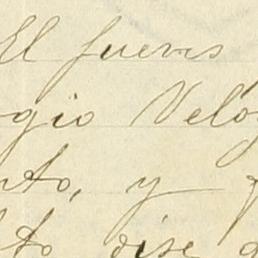 El jueves
gio Veló
nto, y
to dise